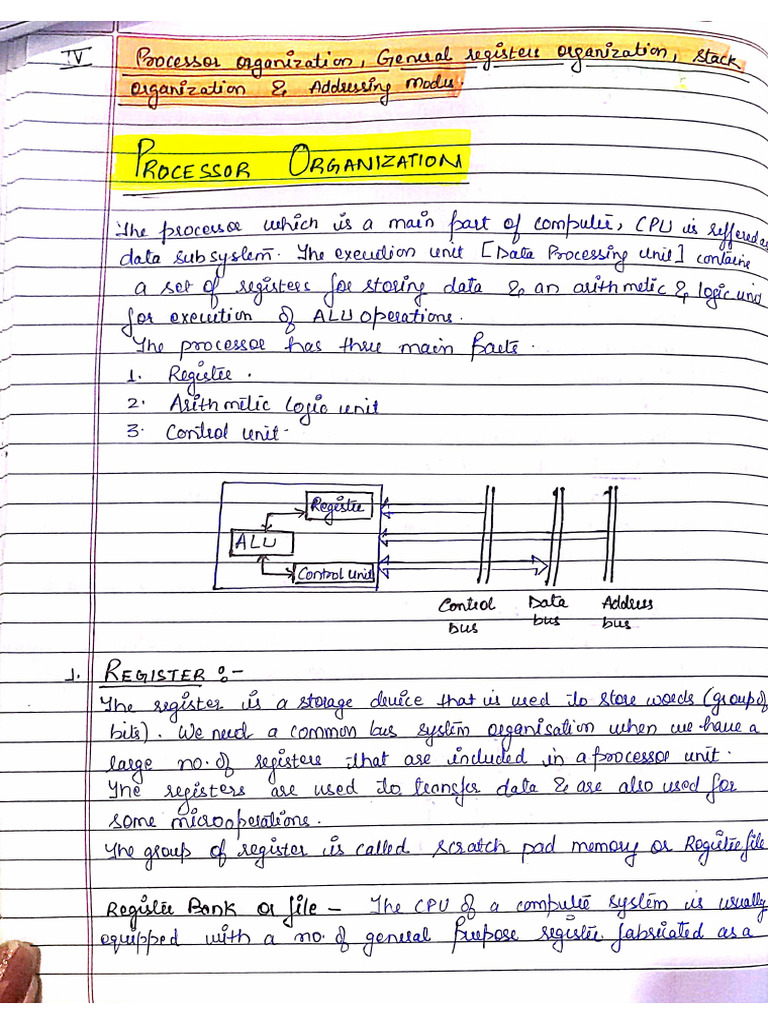 IV Processor organization, General registers organization, stack
organization & Addressing modes.
PROCESSOR ORGANIZATION
The processor which is a main part of computer, CPU is reffered as
data subsystem. The execution unit [Data Processing Unit] contains
a set of registers for storing data & an arithmetic & logic unit
for execution of ALU operations.
The processor has three main parts.
1. Register.
2. Arithmetic Logic unit
3. Control unit.
Register
ALU
Control Unit
Control bus
Data bus
Address bus
1. REGISTER :-
The register is a storage device that is used to store words (group of
bits). We need a common bus system organisation when we have a
large no. of registers that are included in a processor unit.
The registers are used to transfer data & are also used for
some microoperations.
The group of register is called scratch pad memory or Register file
Register Bank or file - The CPU of a computer system is usually
equipped with a no. of general purpose register fabricated as a